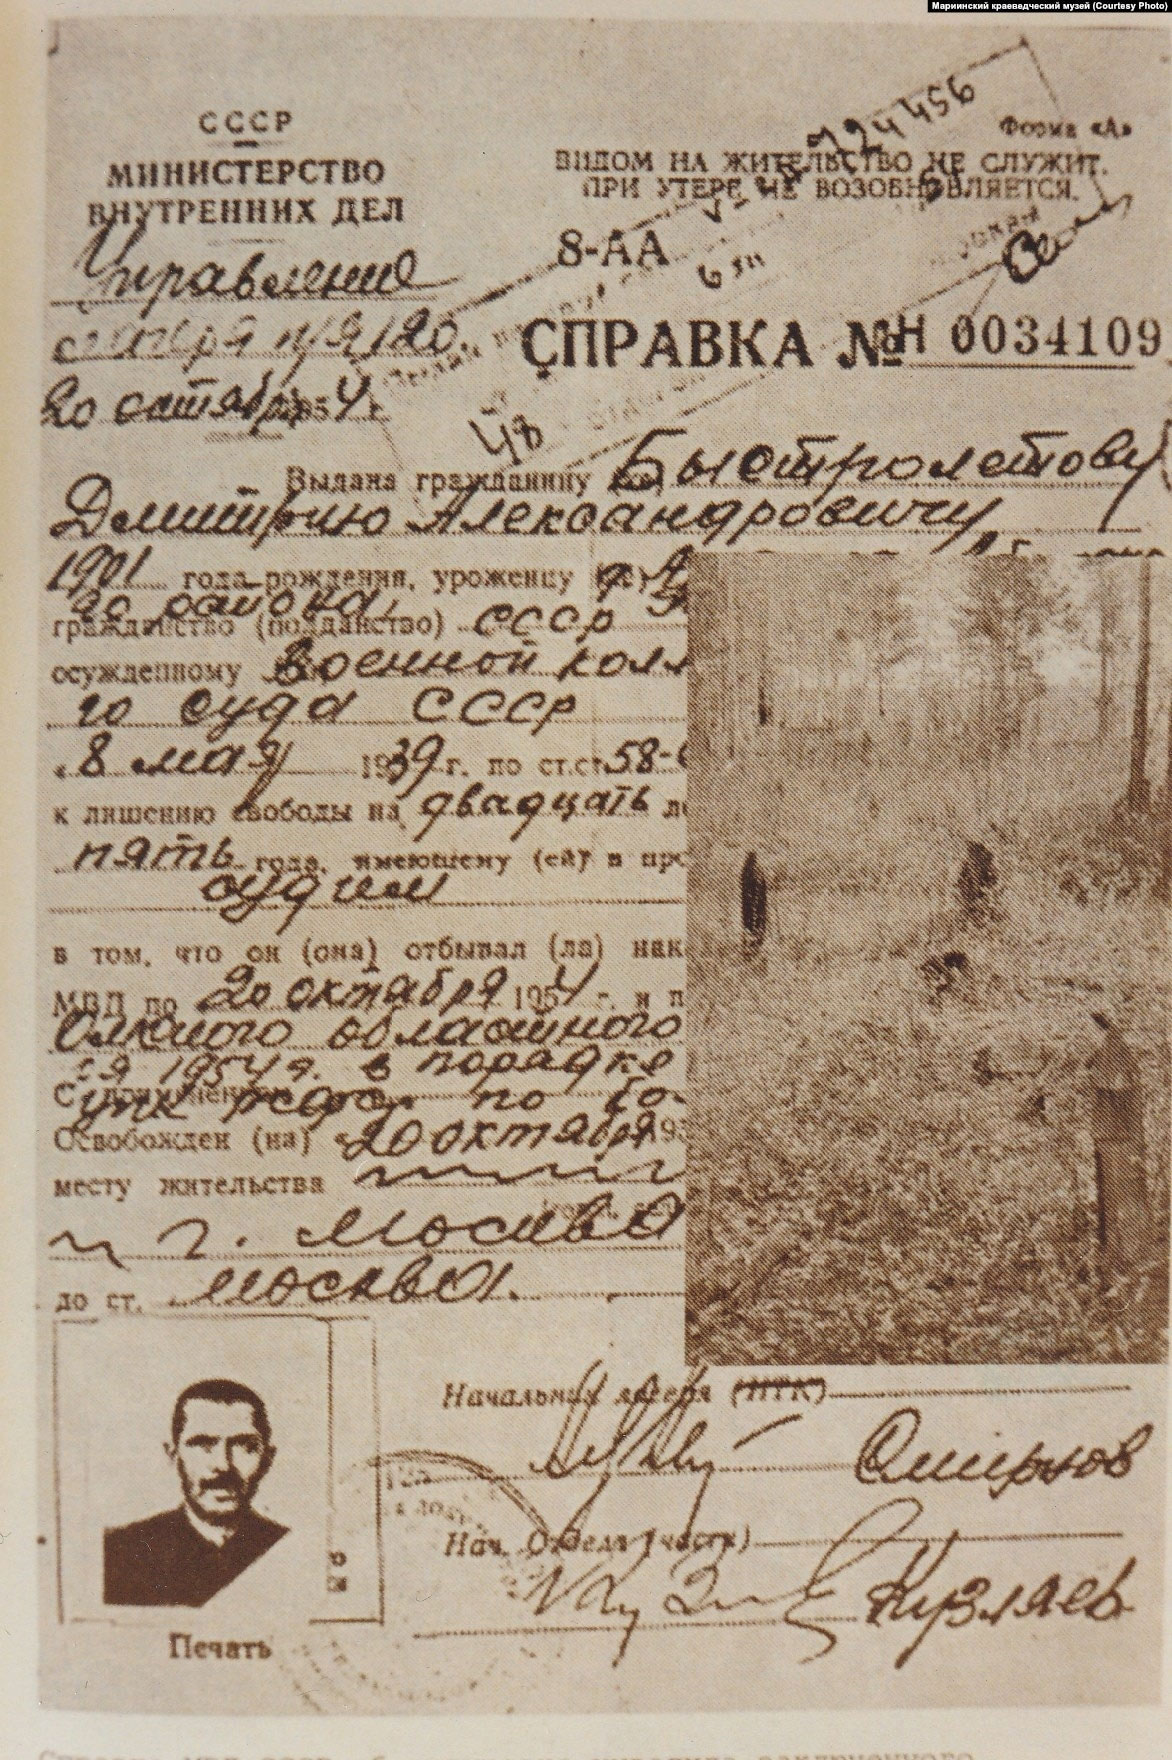 Мариинский краеведческий музей (Courtesy Photo)
СССР
МИНИСТЕРСТВО
ВНУТРЕННИХ ДЕЛ
Управление
лагеря п/я 120.
20 октября 1954 г.
Форма «А»
ВИДОМ НА ЖИТЕЛЬСТВО НЕ СЛУЖИТ.
ПРИ УТЕРЕ НЕ ВОЗОБНОВЛЯЕТСЯ.
724456
8-АА
СПРАВКА № Н 0034109
48
Выдана гражданину Быстролетову
Дмитрию Александровичу
1901 года рождения, уроженцу
го района,
гражданство (подданство) СССР
осужденному Военной кол
го суда СССР
8 мая 1939 г. по ст.ст. 58-
к лишению свободы на двадцать
пять года, имеющему (ей) в про
судим
в том, что он (она) отбывал (ла) нак
МВД по 20 октября 1954 г. и п
Омского областного
1954 г. в порядке
УПК РСФСР по бо
Освобожден (на) «20 октября 195
месту жительства
г. Москва
до ст. Москва.
Начальник лагеря (ИТК)
Смирнов
Нач. Отдела (части)
Кузляев
Печать